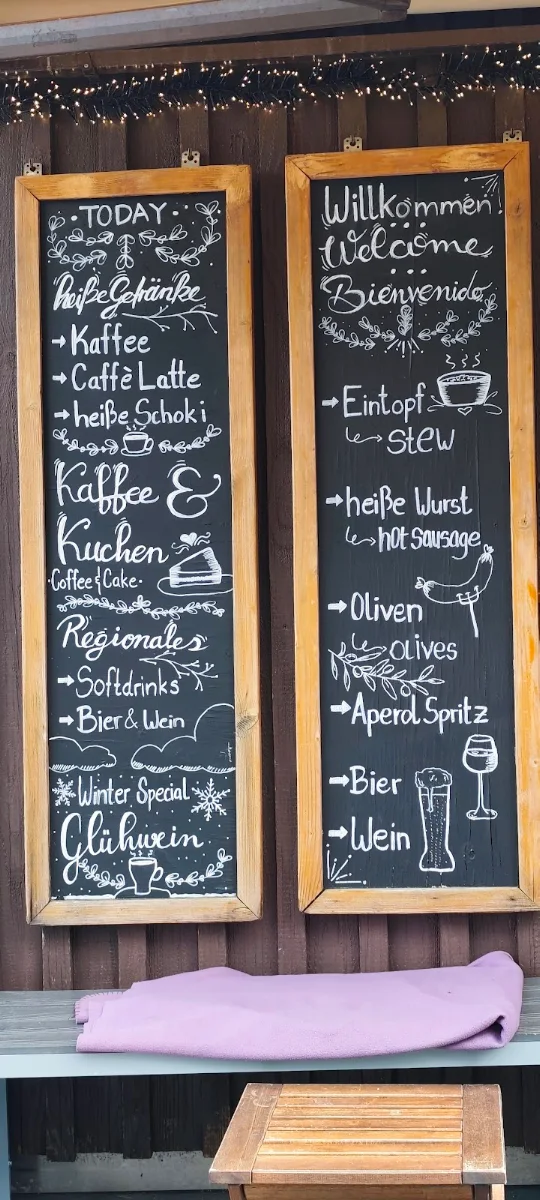 TODAY
heiße Getränke
→ Kaffee
→ Caffè Latte
→ heiße Schoki
Kaffee &
Kuchen
·Coffee & Cake·
Regionales
→ Softdrinks
→ Bier & Wein
Winter Special
Glühwein
Willkommen!
Welcome
Bienvenido
→ Eintopf
stew
→ heiße Wurst
hot sausage
→ Oliven
olives
→ Aperol Spritz
→ Bier
→ Wein